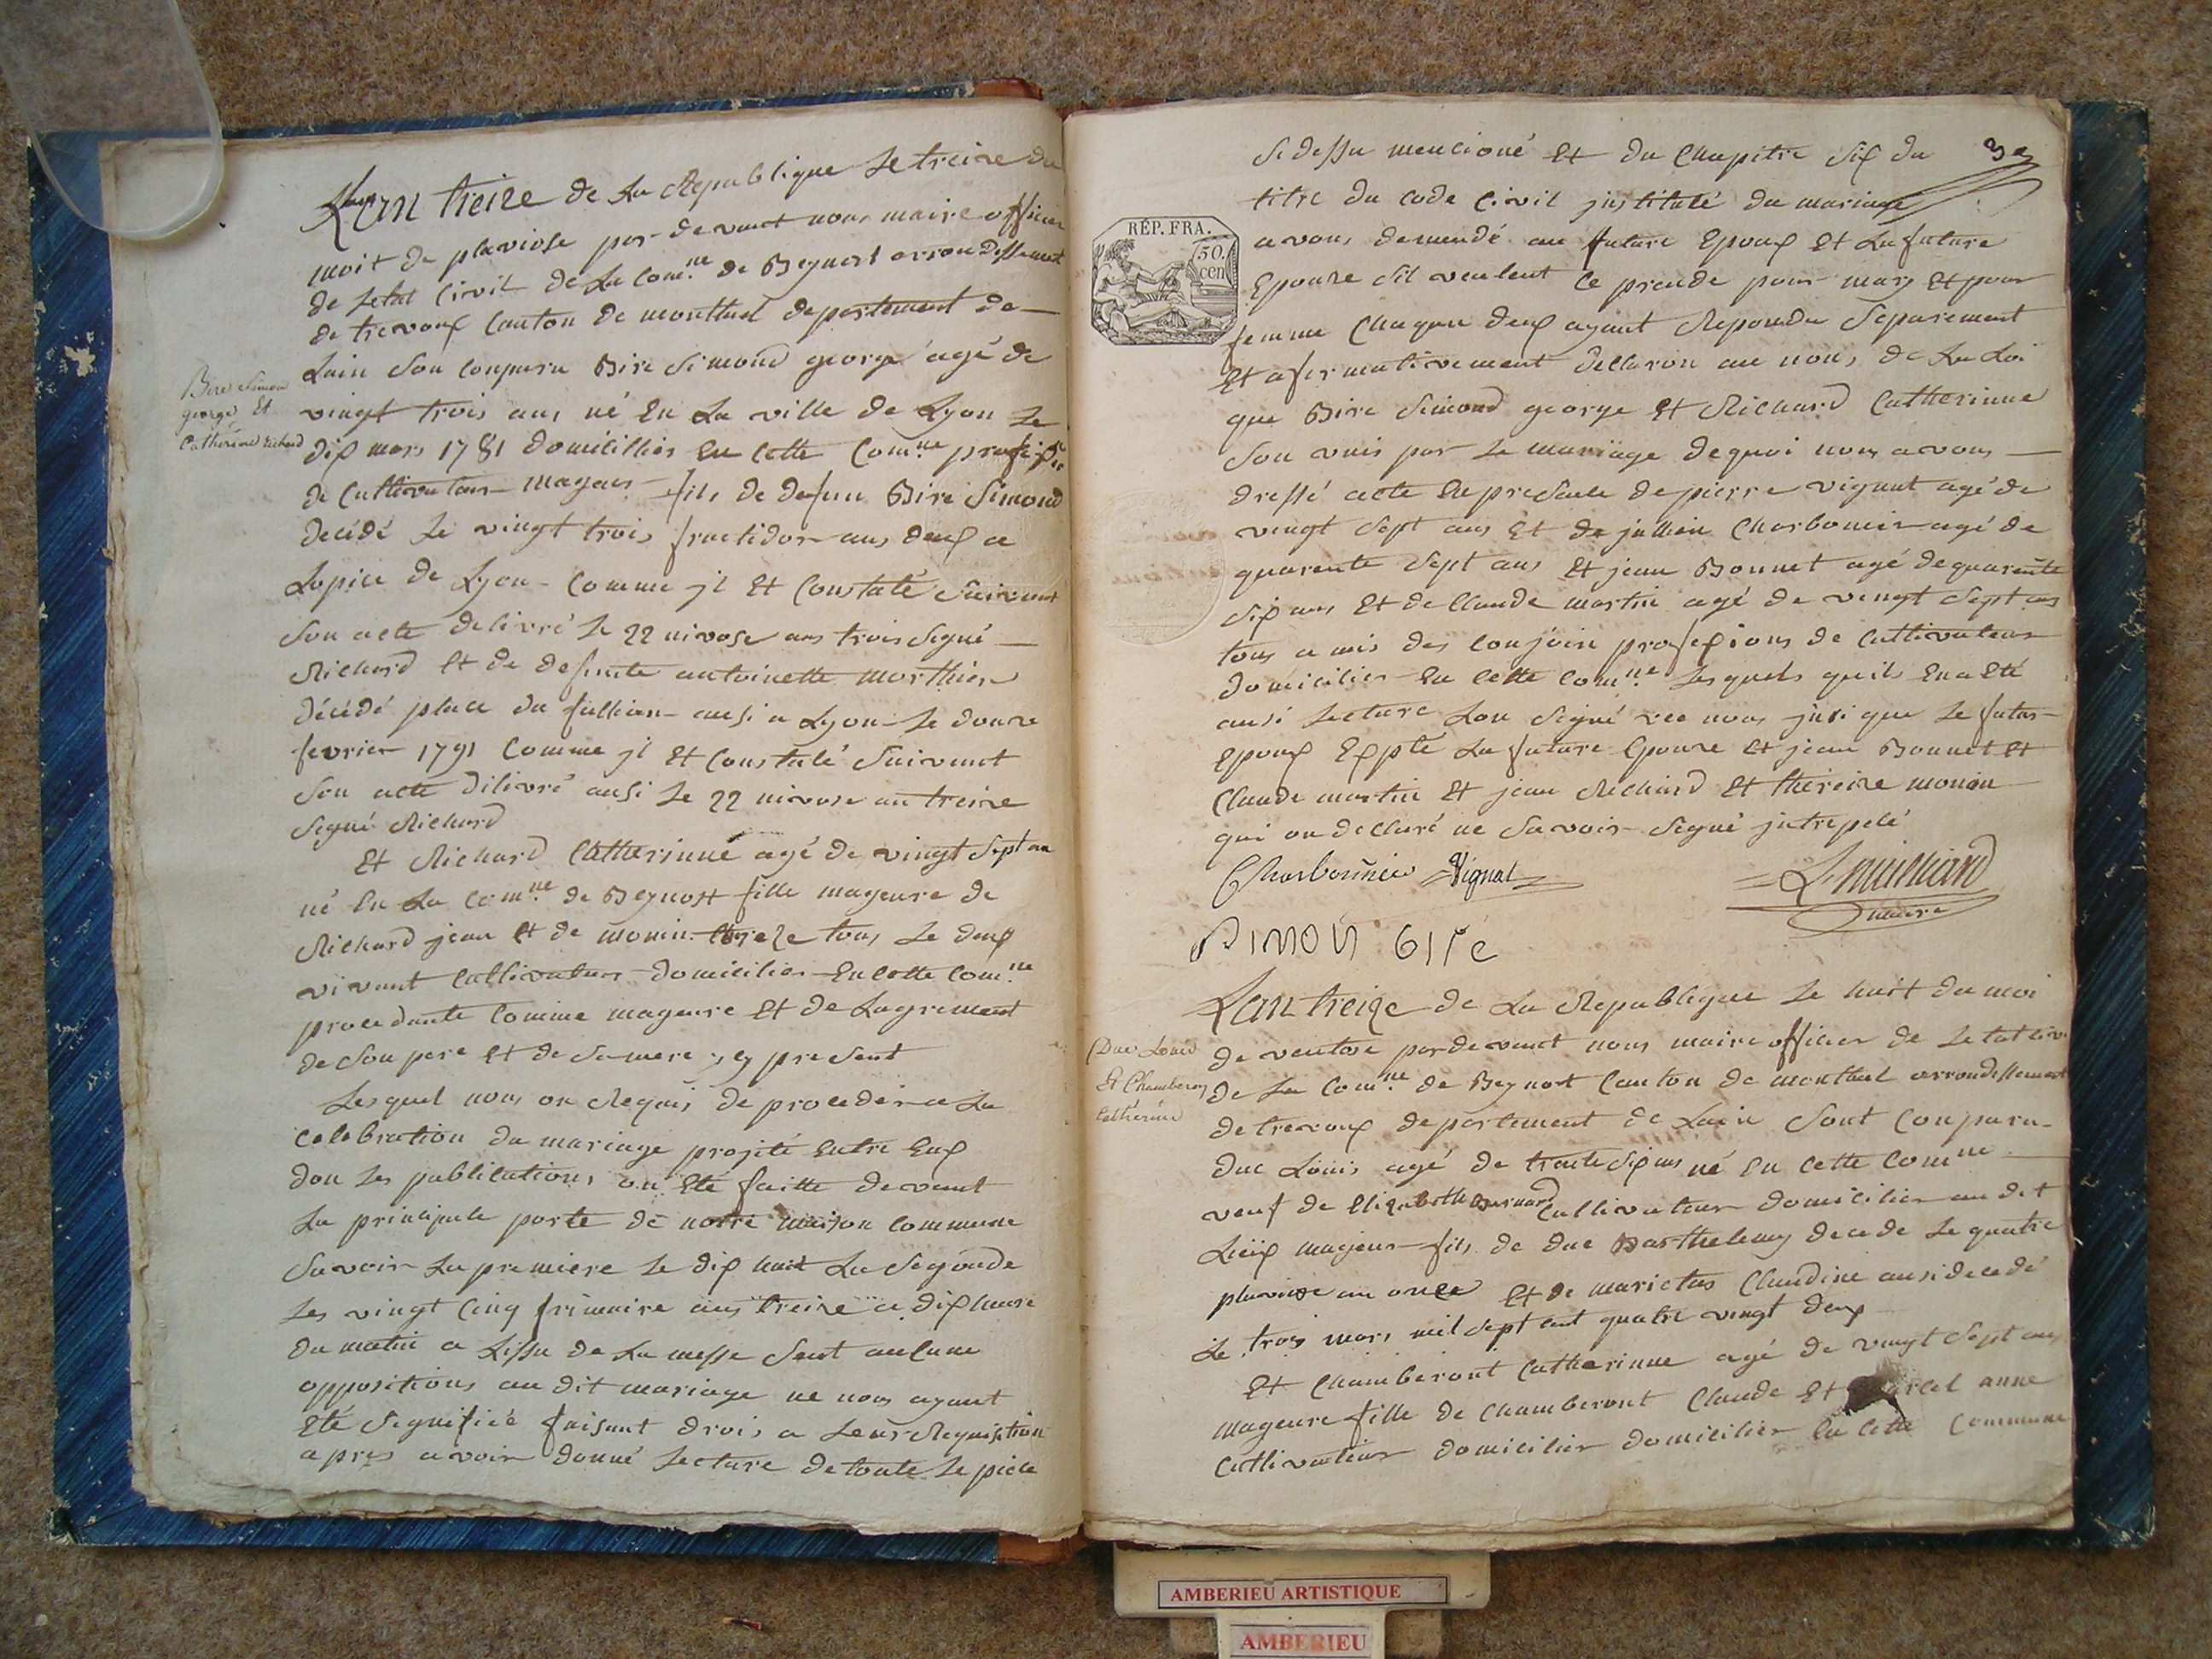 L'an treize de La Republique Le treize du
moit de pluviose par-devant nous maire officier
de Letat Civil de La Com.ne de Beynost arrondissement
de trevoux Canton de montluel departement de
Lain Son Conparu Bire Simond george agé de
Bire Simon
george Et
Catherine richard
vingt trois ans né En La ville de Lyon Le
dix mars 1781 domicillier En Cette Com.ne profession
de Cultivateur majeur fils de defun Bire Simond
decédé Le vingt trois fructidor ans deux a
Lopice de Lyon Comme jl Et Constaté Suivent
Son acte delivré Le 22 nivose ans trois Segné
Richard Et de defunte antoinette morthier
décédé place du fullian ausi a Lyon Le douze
fevrier 1791 Comme jl Et Constaté Suivent
Son acte dilivré ausi Le 22 nivose an treize
Segné Richard
Et Richard Catherinne agé de vingt Sept an
né En La Com.ne de Beynost fille mageure de
Richard jean Et de monin tereze tous Le deux
vivant Cultivateur domicilier En Cette Com.ne
procedante Comme mageure Et de Lagrement
de Son pere Et de Sa mere y presant
Lesquel nous on Requis de proceder a La
Celebration du mariage projité Entre Eux
don Les publications on Eté faitte devant
La principale porte de notre maison Commune
Savoir La premiere Le dix huit La Segonde
Les vingt Cinq frimaire ans treize a dix heure
du matin a Lissu de La messe Sent aucune
oppositions au dit mariage ne nous ayant
Eté Signifiée faisant drois a Leur Requisition
apres avoir donné Lecture de toute Le piece
Sidessu mencioné Et du Chapitre Six du
titre du Code Civil justitulé du mariage
RÉP. FRA.
50.
cen
avons demendé au future Epoux Et La future
Epouze Sil veulent Ce prende pour mary Et pour
femme Chaqun deux ayant Repondu Separement
Et afirmativement declaron au nons de La Loi
que Bire Simond george Et Richard Catherinne
Son unis par Le mariage dequoi nous avons
dressé acte En presente de pierre vignat agé de
vingt Sept ans Et de jullien Charbonnier agé de
quarente Sept ans Et jean Bonnet agé de quarente
Six ans Et de Claude martin agé de vingt Sept ans
tous amis des Conjoin profexions de Cultivateur
domicilier En Cette Com.ne Lesquels quils En a Eté
ausi Lecture Lon Signé vec nous jnsi que Le futur
Epoux Expté La future Epouze Et jean Bonnet Et
Claude martin Et jean Richard Et thereize monin
qui on declaré ne Savoir Segné jntrepelé
Charbonnier Vignat
maire
Simon Bire
L'an treize de La Republique Le huit du moi
de ventose pardevant nous maire officier de Letat Civ
Duc Louis
Et Chamberon
Catherine
de La Com.ne de Beynost Canton de montluel arrondissement
de trevoux departement de Lain Sont Conparu
duc Louis agé de trente Six ans né En Cette Com.ne
veuf de Elizabetth Bernard Cultivateur domicilier au dit
Lieux majeur fils de duc Barthelemy decede Le quatre
pluviose an onze Et de marictus Claudine ausi decedé
Le trois mars mil Sept Cent quatre vingt deux
Et Chamberont Catherinne agé de vingt Sept ans
mageure fille de Chamberont Claude Et anne
Cultivateur domicilier domicilier En Cette Commune
AMBERIEU ARTISTIQUE
AMBERIEU